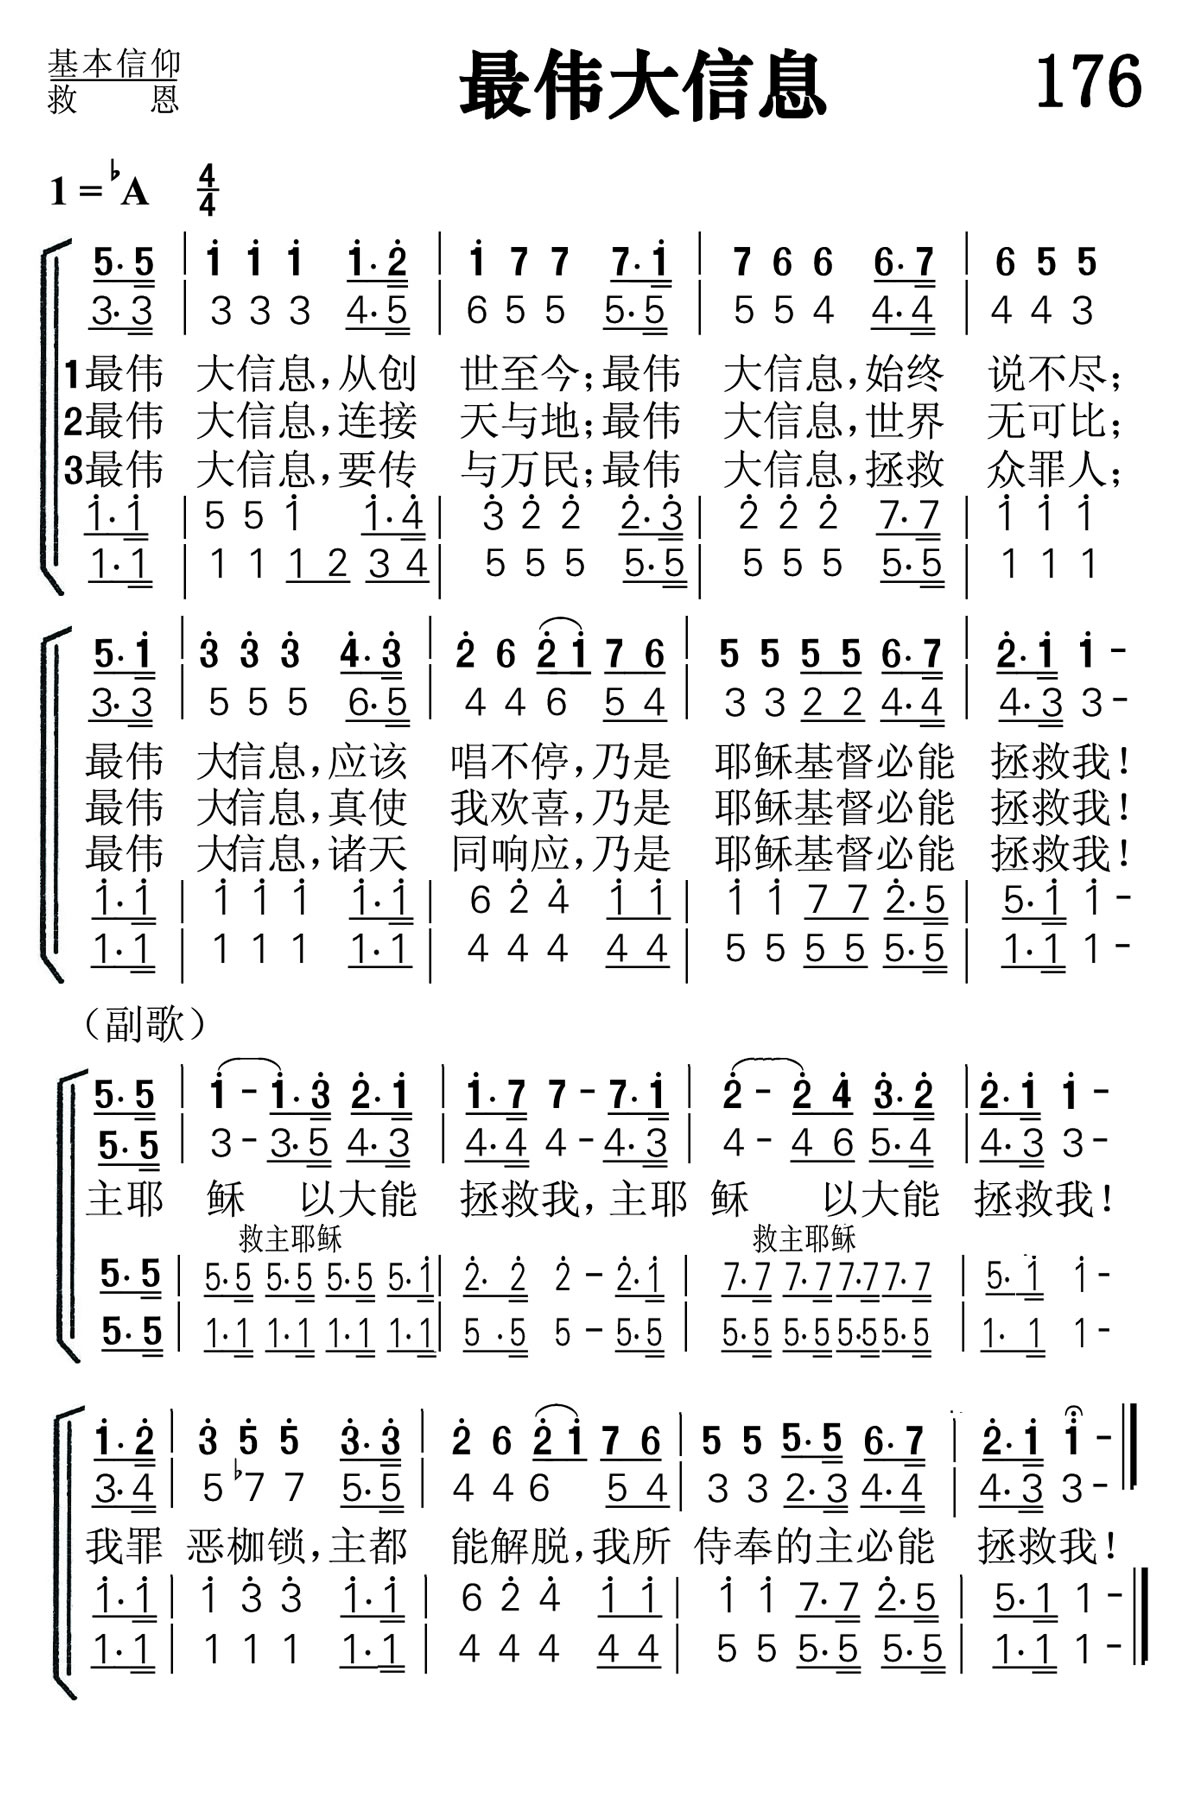 基本信仰 最伟大信息 176
救 恩
1=♭A 4/4
5·5 | 1̇ 1̇ 1̇ 1̇·2̇ | 1̇ 7 7 7·1̇ | 7 6 6 6·7 | 6 5 5
3·3 | 3 3 3 4·5 | 6 5 5 5·5 | 5 5 4 4·4 | 4 4 3
1最伟 大信息,从创 世至今;最伟 大信息,始终 说不尽;
2最伟 大信息,连接 天与地;最伟 大信息,世界 无可比;
3最伟 大信息,要传 与万民;最伟 大信息,拯救 众罪人;
1̇·1̇ | 5 5 1̇ 1̇·4̇ | 3̇ 2̇ 2̇ 2̇·3̇ | 2̇ 2̇ 2̇ 7·7 | 1̇ 1̇ 1̇
1·1 | 1 1 1 2 3 4 | 5 5 5 5·5 | 5 5 5 5·5 | 1 1 1
5·1̇ | 3̇ 3̇ 3̇ 4̇·3̇ | 2̇ 6 2̇ 1̇ 7 6 | 5 5 5 5 6·7 | 2̇·1̇ 1̇ -
3·3 | 5 5 5 6·5 | 4 4 6 5 4 | 3 3 2 2 4·4 | 4·3 3 -
最伟 大信息,应该 唱不停,乃是 耶稣基督必能 拯救我!
最伟 大信息,真使 我欢喜,乃是 耶稣基督必能 拯救我!
最伟 大信息,诸天 同响应,乃是 耶稣基督必能 拯救我!
1̇·1̇ | 1̇ 1̇ 1̇ 1̇·1̇ | 6 2̇ 4̇ 1̇ 1̇ | 1̇ 1̇ 7 7 2̇·5 | 5·1̇ 1̇ -
1·1 | 1 1 1 1·1 | 4 4 4 4 4 | 5 5 5 5 5·5 | 1·1 1 -
（副歌）
5·5 | 1̇ - 1̇·3̇ 2̇·1̇ | 1̇·7 7 - 7·1̇ | 2̇ - 2̇ 4̇ 3̇·2̇ | 2̇·1̇ 1̇ -
5·5 | 3 - 3·5 4·3 | 4·4 4 - 4·3 | 4 - 4 6 5·4 | 4·3 3 -
主耶 稣 以大能 拯救我,主耶 稣 以大能 拯救我!
救主耶稣 救主耶稣
5·5 | 5·5 5·5 5·5 5·1̇ | 2̇·2̇ 2̇ - 2̇·1̇ | 7·7 7·7 7·7 7·7 | 5·1̇ 1̇ -
5·5 | 1·1 1·1 1·1 1·1 | 5·5 5 - 5·5 | 5·5 5·5 5·5 5·5 | 1·1 1 -
1̇·2̇ | 3̇ 5̇ 5̇ 3̇·3̇ | 2̇ 6 2̇ 1̇ 7 6 | 5 5 5·5 6·7 | 2̇·1̇ 1̇ -
3·4 | 5 ♭7 7 5·5 | 4 4 6 5 4 | 3 3 2·3 4·4 | 4·3 3 -
我罪 恶枷锁,主都 能解脱,我所 侍奉的主必能 拯救我!
1̇·1̇ | 1̇ 3̇ 3̇ 1̇·1̇ | 6 2̇ 4̇ 1̇ 1̇ | 1̇ 1̇ 7·7 2̇·5 | 5·1 1 -
1·1 | 1 1 1 1·1 | 4 4 4 4 4 | 5 5 5·5 5·5 | 1·1 1 -